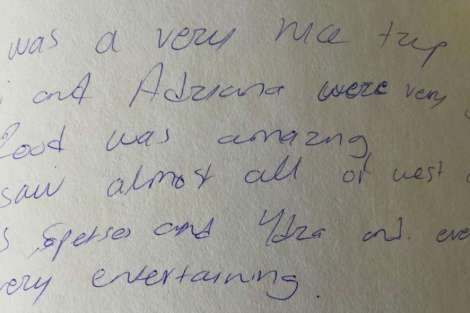 was a very nice trip
and Adriana were very
Food was amazing
saw almost all of west
Spetses and Ydra and eve
very entertaining.